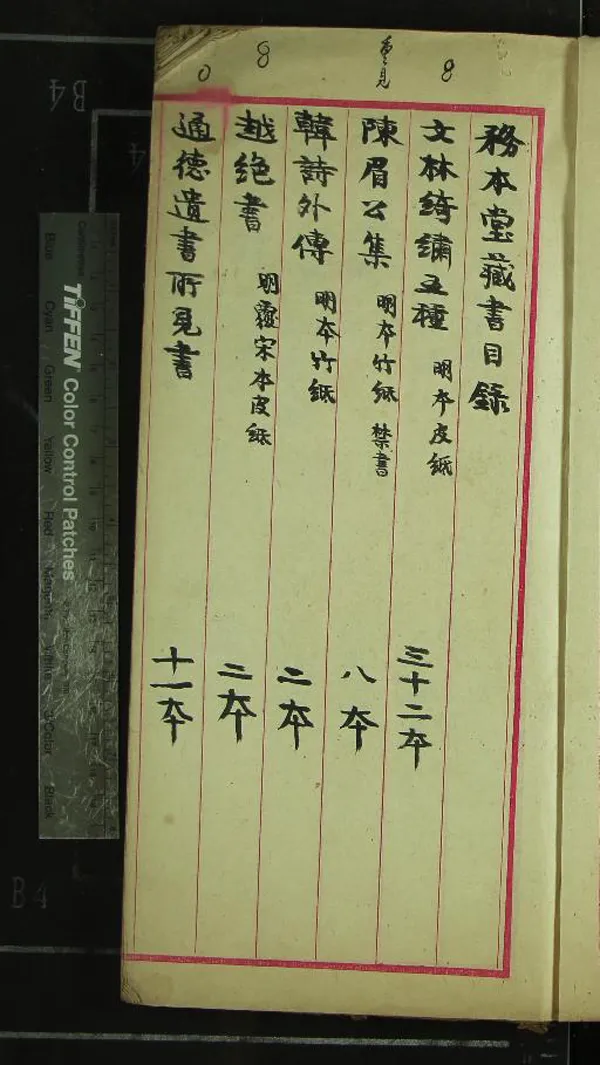 務本堂藏書目錄
文林綺繡五種 明本皮紙 三十二本
陳眉公集 明本竹紙 禁書 八本
韓詩外傳 明本竹紙 二本
越絕書 明覆宋本皮紙 二本
通德遺書所見書 十一本
8
重見
8
0
B4
4
B4
TIFFEN Color Control Patches
Blue Cyan Green Yellow Red Magenta White 3/Color Black